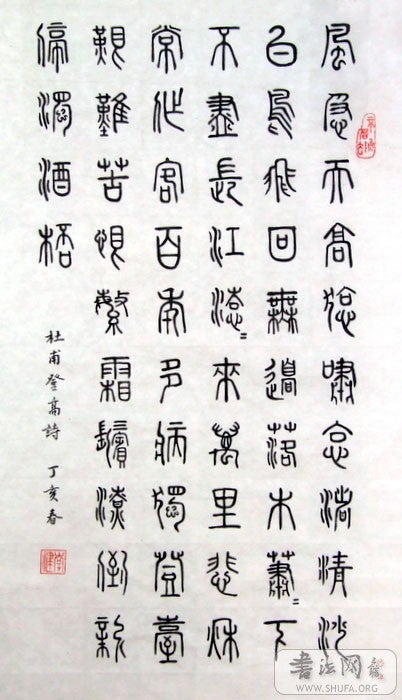 風急天高猿嘯哀渚清沙
白鳥飛回無邊落木蕭〻下
不盡長江滾〻來萬里悲秋
常作客百年多病獨登臺
艱難苦恨繁霜鬢潦倒新
停濁酒杯
杜甫登高詩 丁亥春
書法网
WWW.SHUFA.ORG